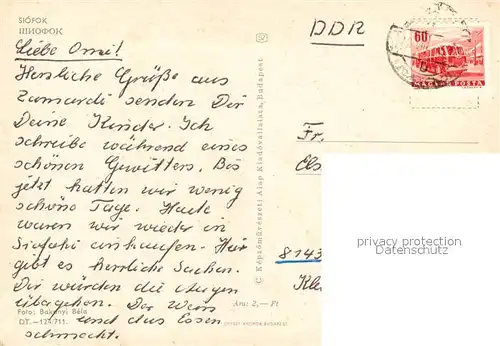 SIÓFOK
ШИОФОК
DDR
60
MAGYAR POSTA
Liebe Omi!
Herzliche Grüße aus
Zamardi senden Dir
Deine Kinder. Ich
schreibe während eines
schönen Gewitters. Bis
jetzt hatten wir wenig
schöne Tage. Heute
waren wir wieder in
einkaufen. Hier
gibt es herrliche Sachen.
Dir würden die Augen
übergehen. Der Wein
und das Essen
schmeckt.
Foto: Bakonyi Béla
DT.—124/711.
Ara: 2,— Ft
© Képzőművészeti Alap Kiadóvállalata, Budapest
Fr.
8143
proxy disposition
www.delcampe.net